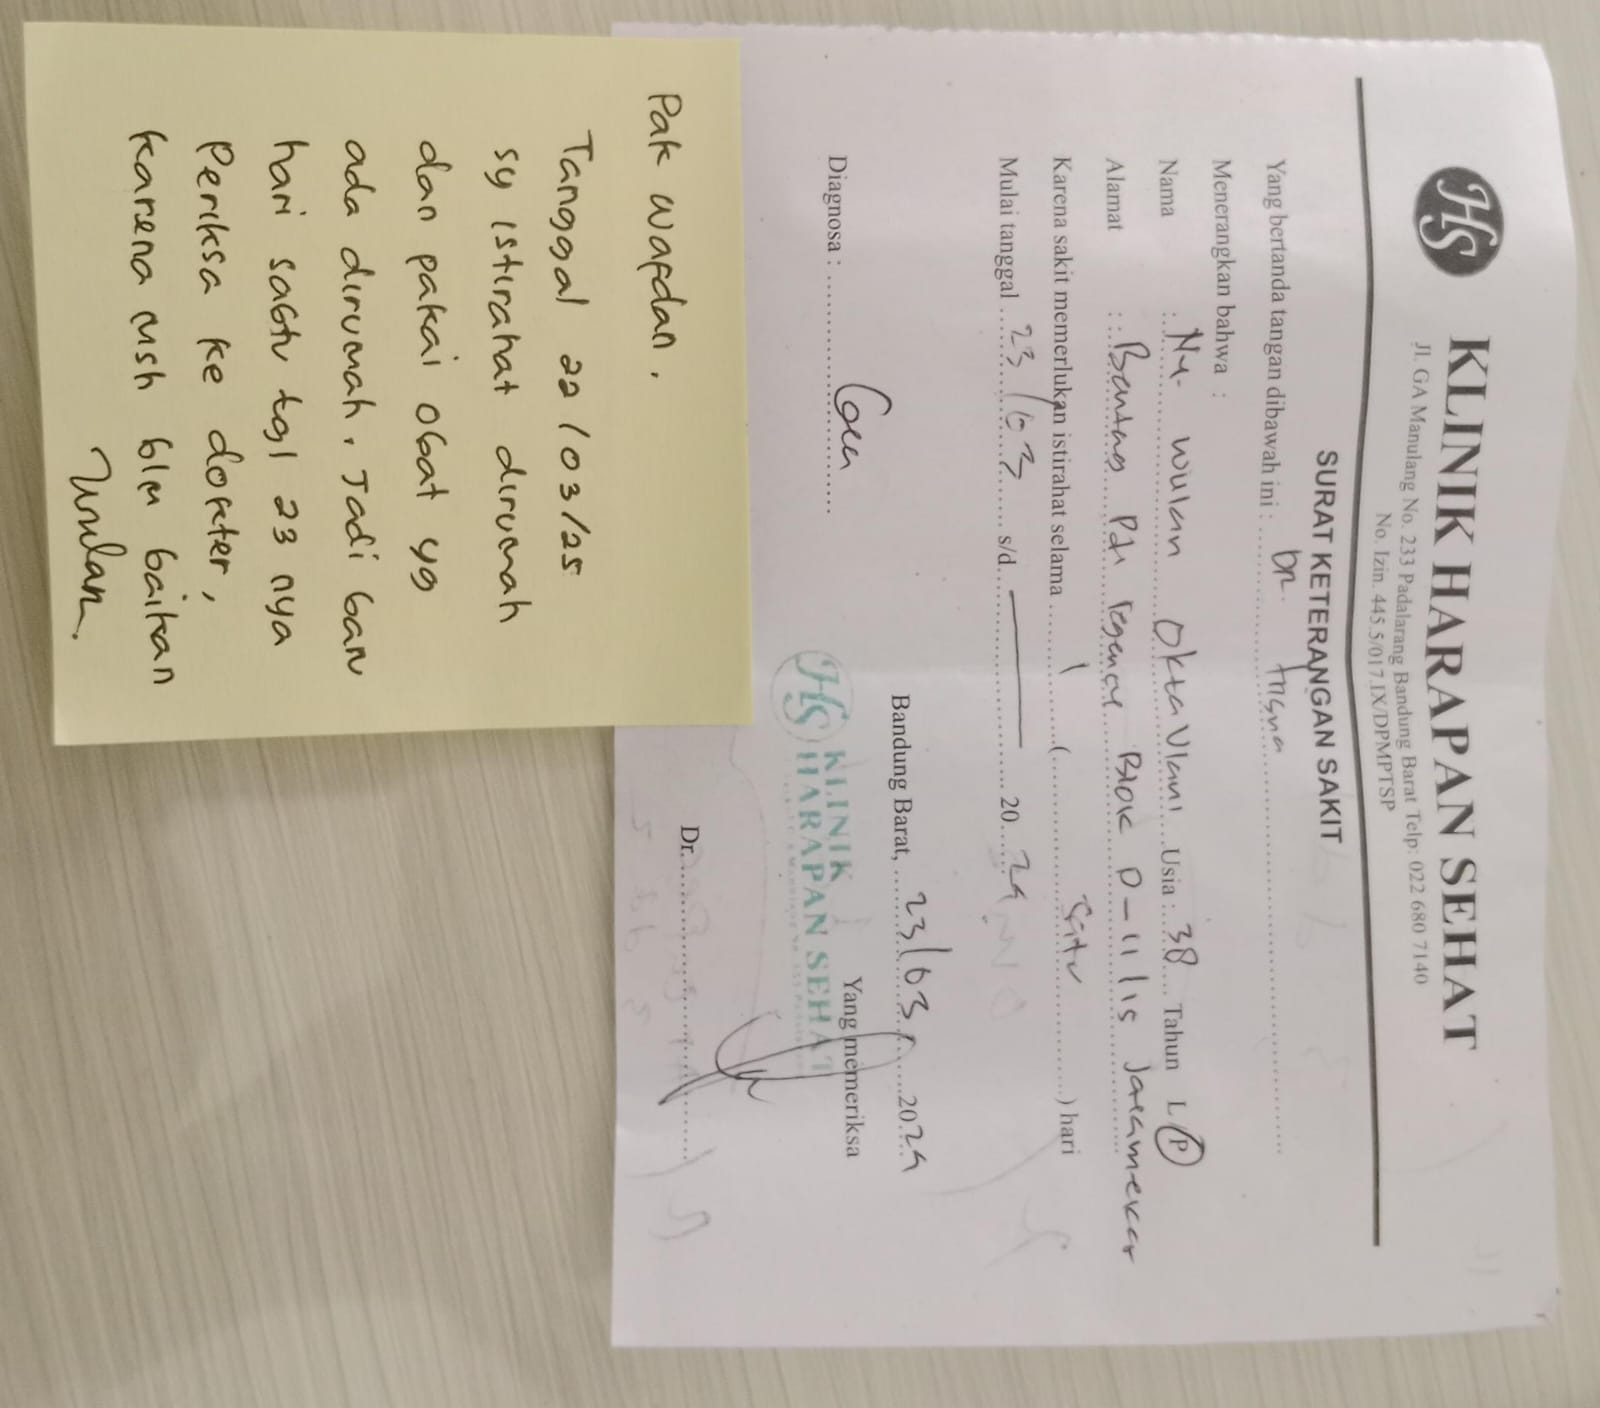 HS
KLINIK HARAPAN SEHAT
Jl. GA Manulang No. 233 Padalarang Bandung Barat Telp: 022 680 7140
No. Izin. 445.5/017.IX/DPMPTSP
SURAT KETERANGAN SAKIT
Yang bertanda tangan dibawah ini : dr. Trisna
Menerangkan bahwa :
Nama : Ny. Wulan Oktaviani Usia : 38 Tahun L P
Alamat : Bentang Pdl Regency Blok D-11/15 Jayamekar
Karena sakit memerlukan istirahat selama 1 ( satu ) hari
Mulai tanggal 23/03 s/d — 2024
Diagnosa :
Bandung Barat, 23/03 2024
Yang memeriksa
KLINIK
HARAPAN SEHAT
Dr.
Pak Wafdan.
Tanggal 22/03/25
sy istirahat dirumah
dan pakai obat yg
ada dirumah. Jadi baru
hari sabtu tgl 23 nya
Periksa ke dokter,
karena msh blm baikan
Wulan.